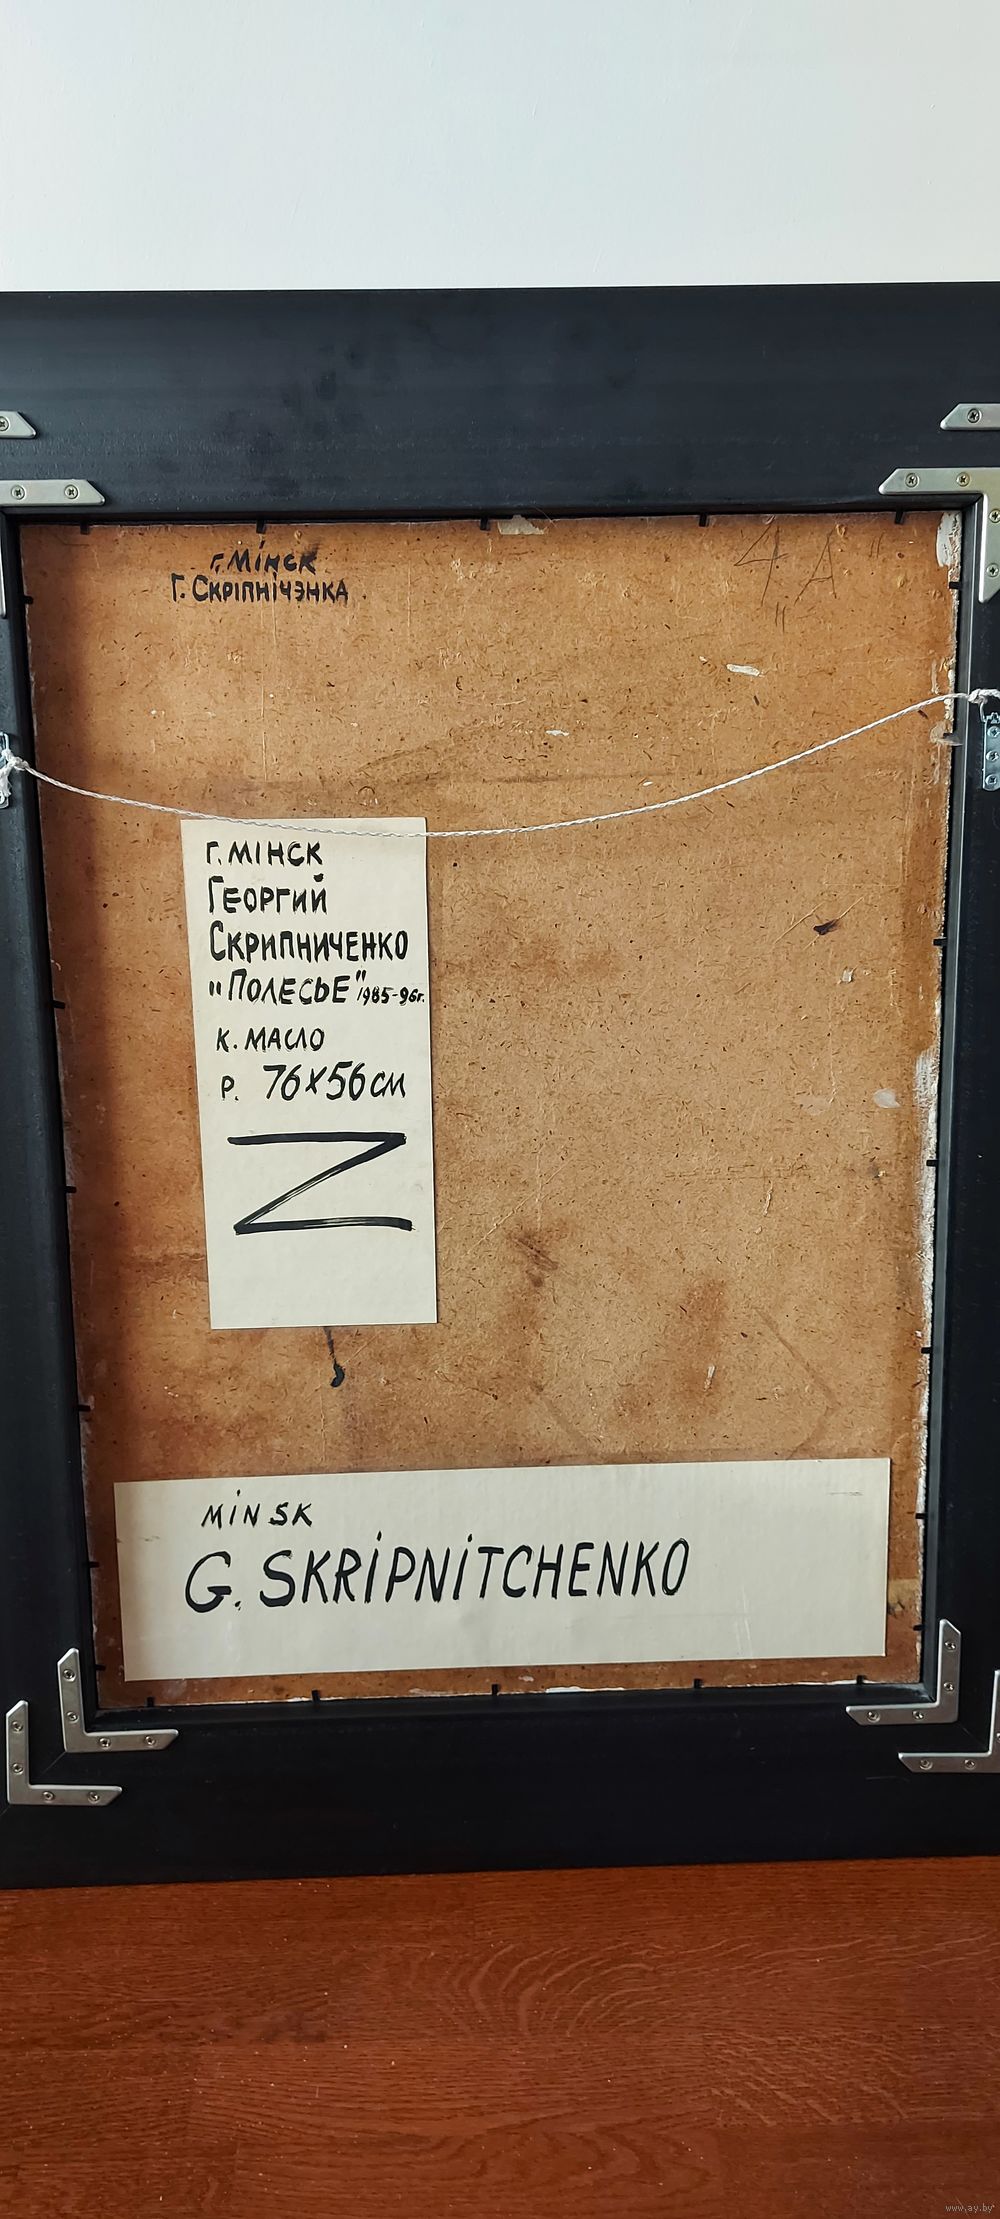 г. Мінск
Г. Скріпнічэнка.
4 "А"
г. Мінск
Георгий
Скрипниченко
"Полесье" 1985-96г.
к. масло
р. 76х56 см
Z
MiNSK
G. SKRiPNiTCHENKO
www.ay.by